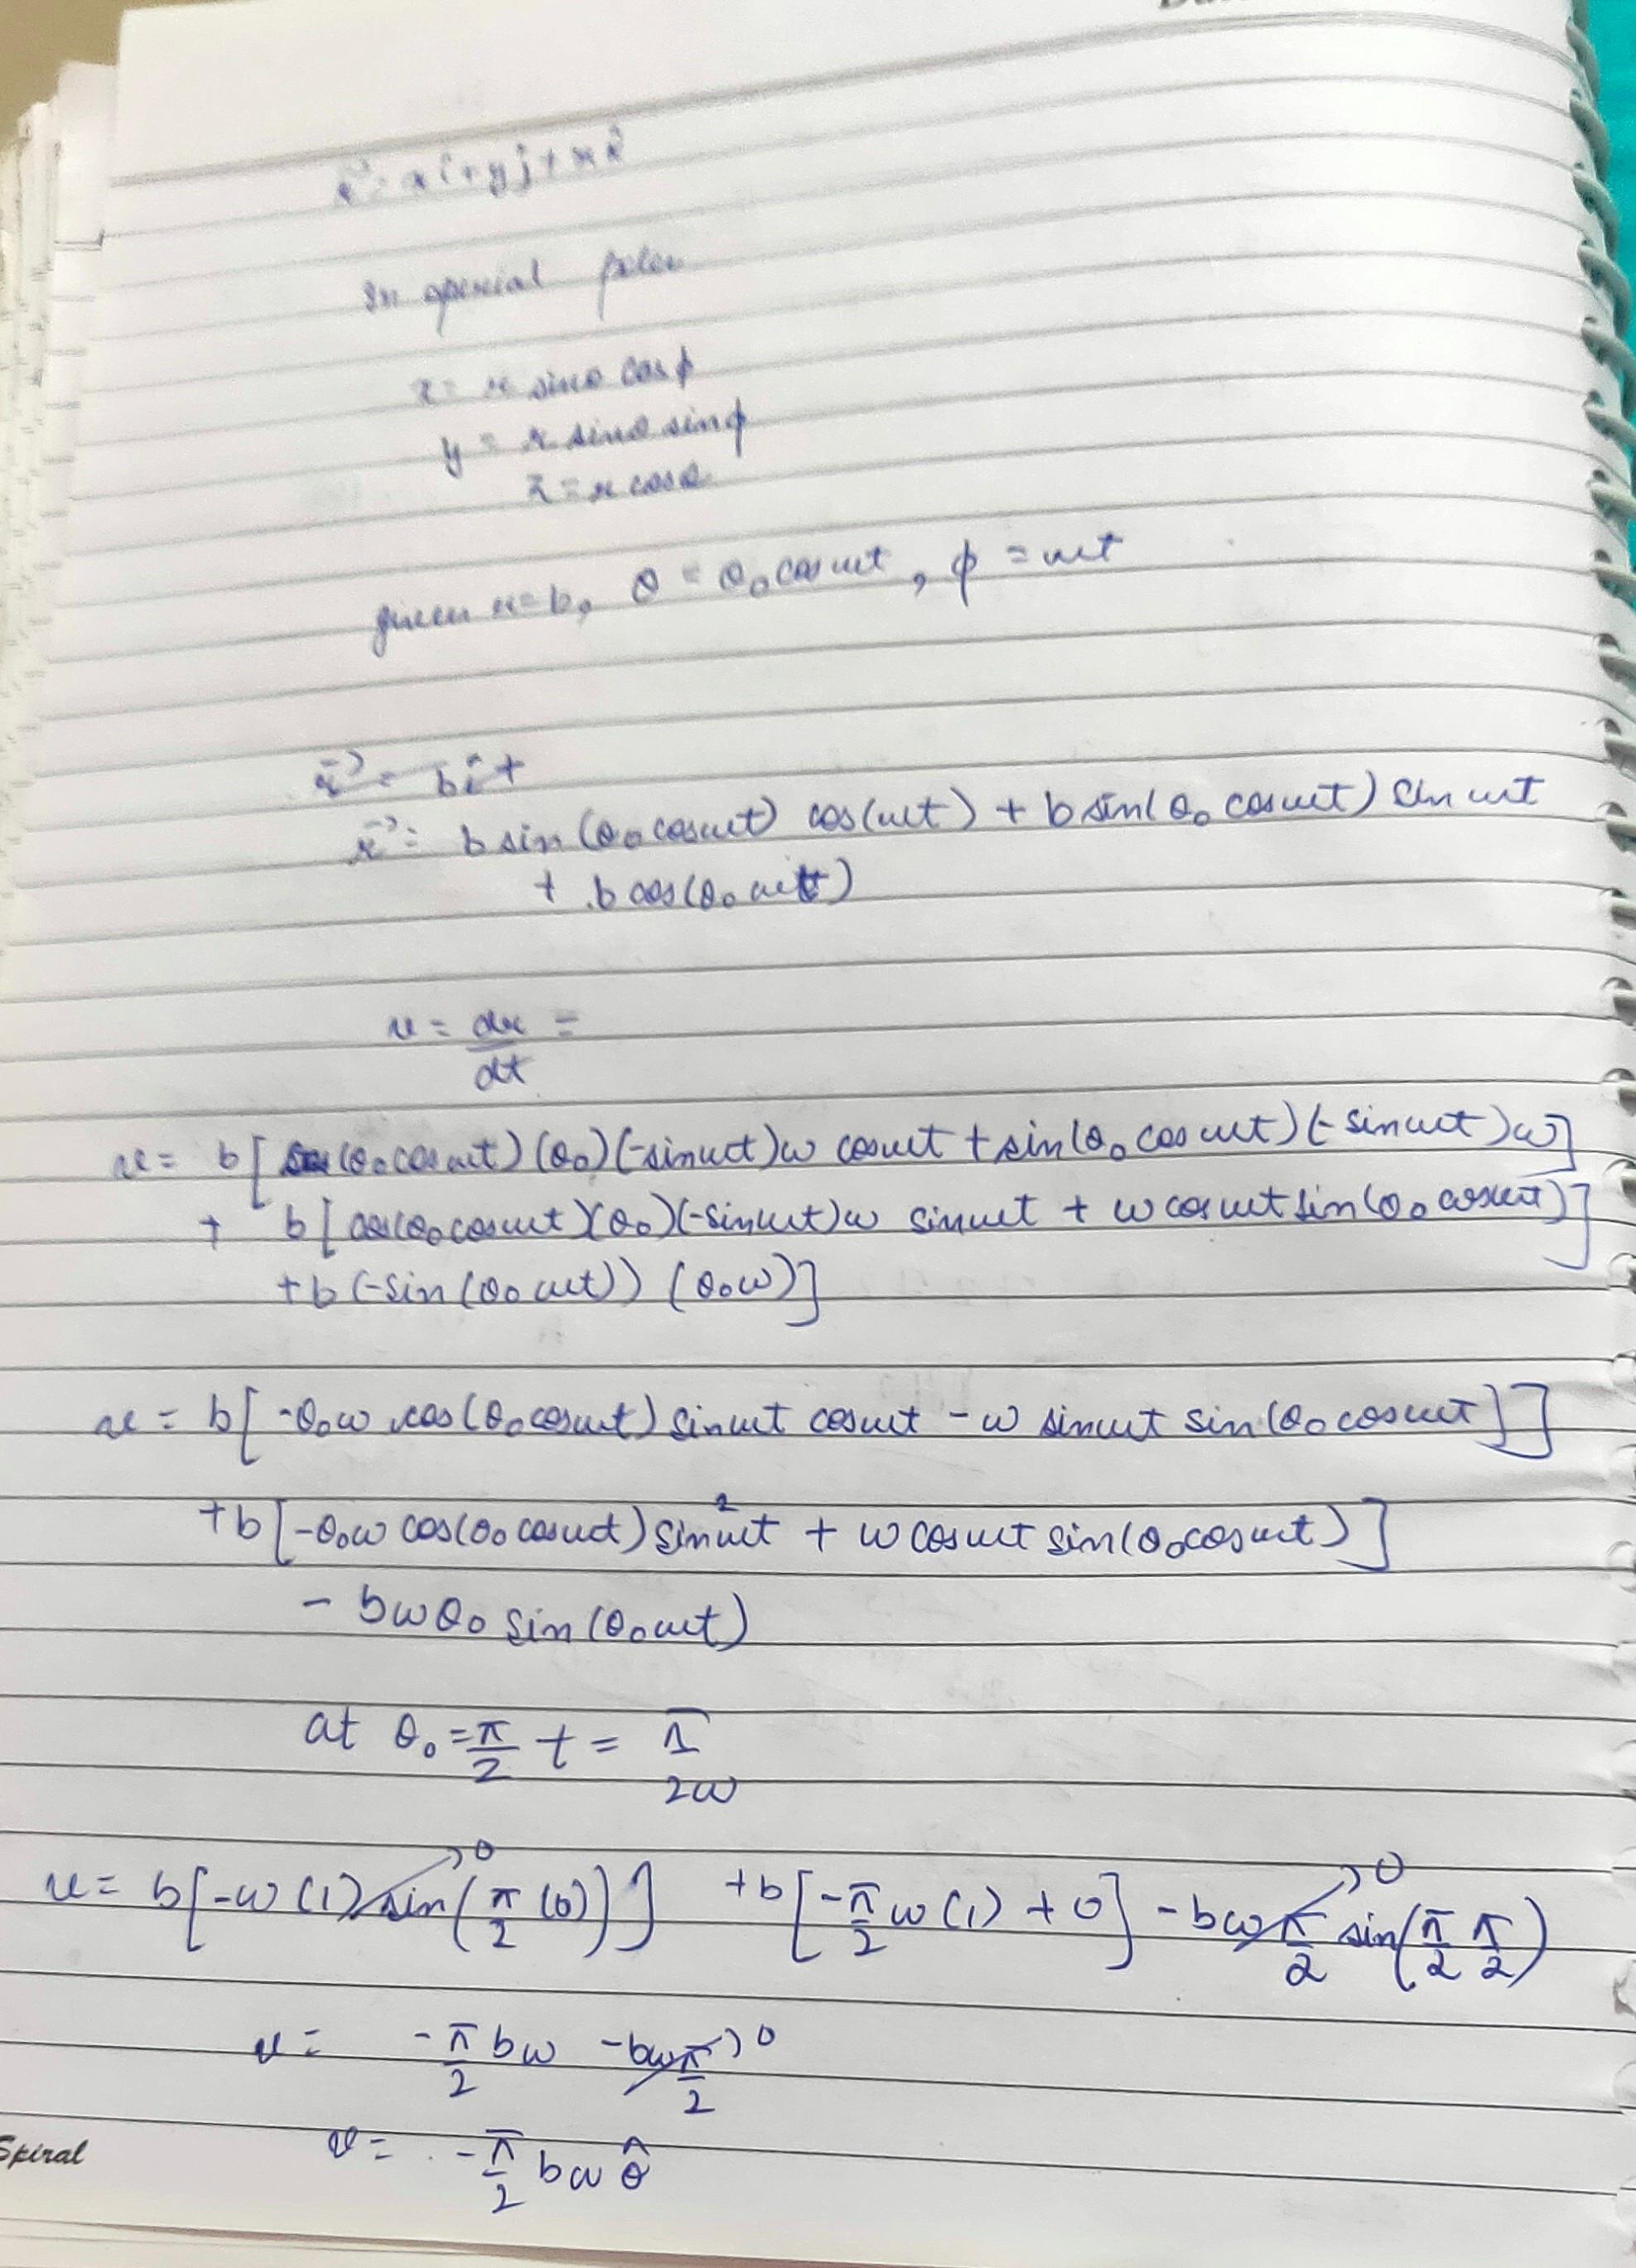 r⃗ = xî + yĵ + xk̂
In sperical polar
x = r sinθ cosϕ
y = r sinθ sinϕ
z = r cosθ
given r=b, θ = θ₀ cosωt, ϕ = ωt
r⃗ = bî +
r⃗ = b sin(θ₀cosωt) cos(ωt) + b sin(θ₀ cosωt) sin ωt
+ b cos(θ₀ωt)
v = dr/dt =
v = b[ (θ₀cosωt)(θ₀)(-sinωt)ω cosωt + sin(θ₀ cosωt)(-sinωt)ω]
+ b[cos(θ₀cosωt)(θ₀)(-sinωt)ω sinωt + ω cosωt sin(θ₀ cosωt)]
+b(-sin(θ₀ωt)) (θ₀ω)]
v = b[-θ₀ω cos(θ₀cosωt) sinωt cosωt - ω sinωt sin(θ₀cosωt]]
+b[-θ₀ω cos(θ₀ cosωt) sin²ωt + ω cosωt sin(θ₀cosωt)]
- bωθ₀ sin(θ₀ωt)
at θ₀ = π/2 t = π/2ω
v = b[-ω(1) sin(π/2 (0))]→0 +b[-π/2 ω(1) + 0] - bω π/2 sin(π/2 π/2)→0
v = -π/2 bω -bω π/2→0
v = -π/2 bω θ̂
Spiral